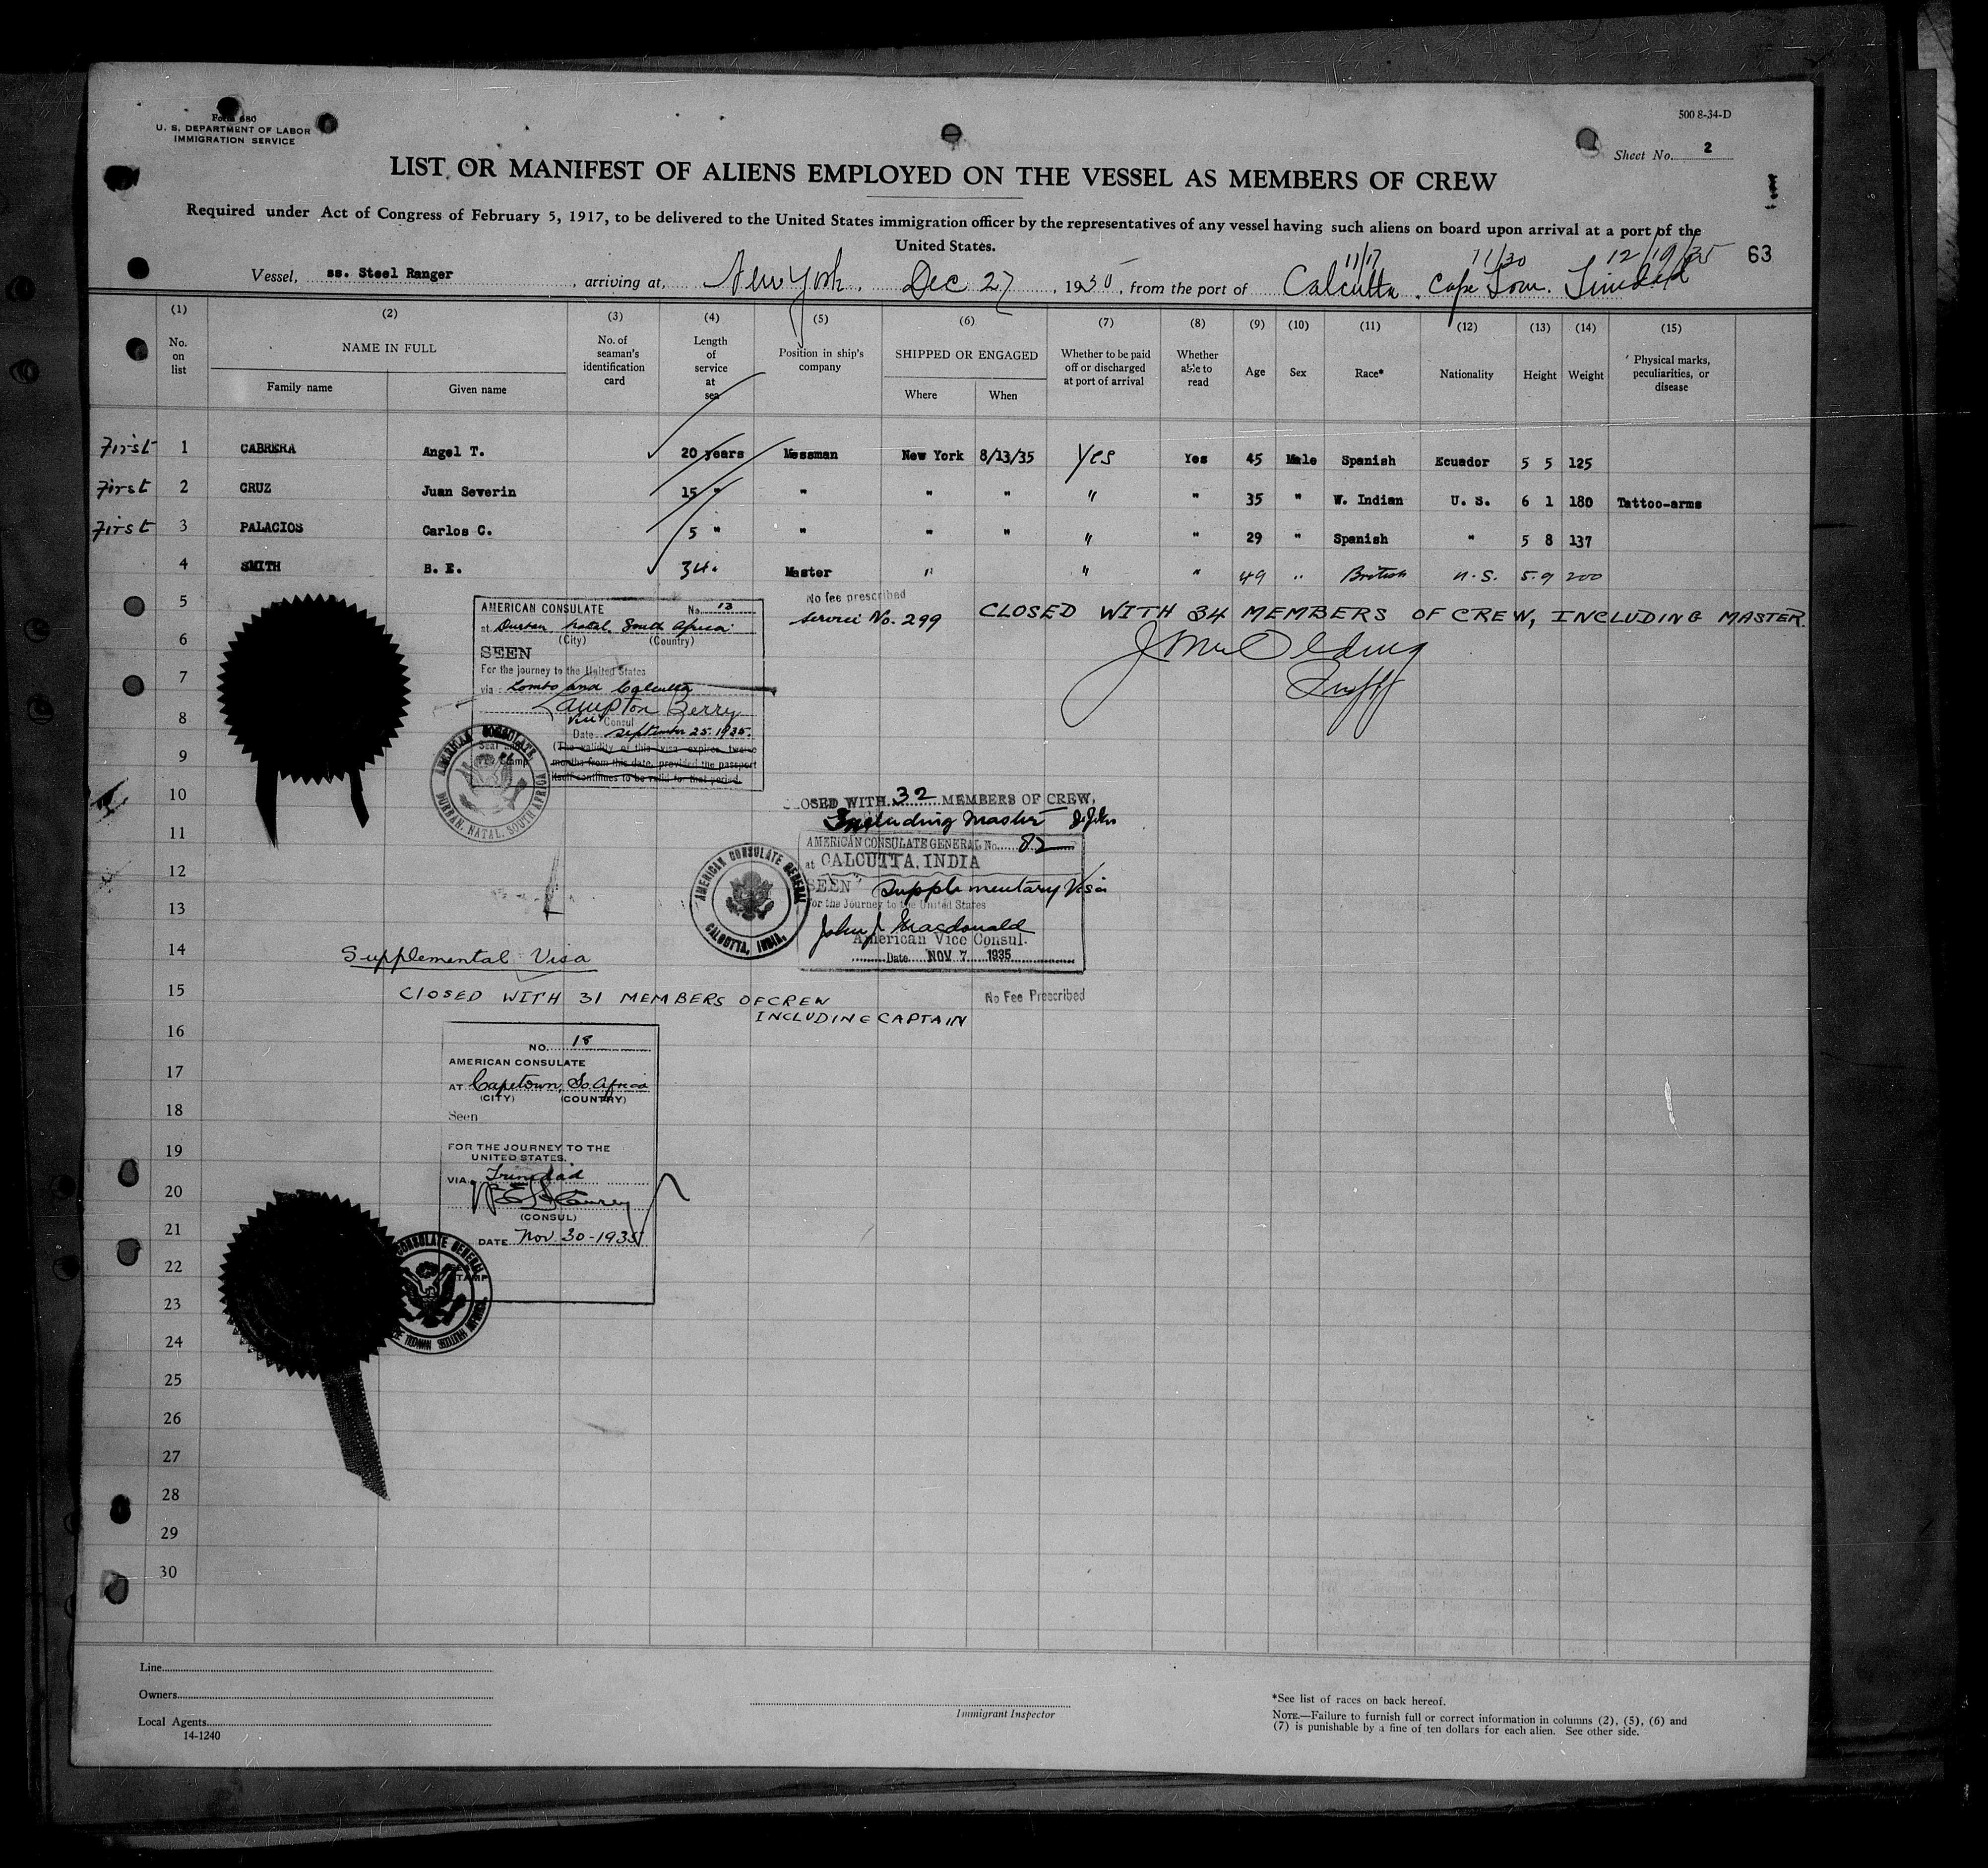 Form 680
U. S. DEPARTMENT OF LABOR
IMMIGRATION SERVICE
500 8-34-D
Sheet No. 2
LIST OR MANIFEST OF ALIENS EMPLOYED ON THE VESSEL AS MEMBERS OF CREW
Required under Act of Congress of February 5, 1917, to be delivered to the United States immigration officer by the representatives of any vessel having such aliens on board upon arrival at a port of the
United States.
11/17 11/30 12/19/35 63
Vessel, ss. Steel Ranger, arriving at, New York. Dec 27, 1935, from the port of Calcutta. Cape Town. Trinidad
(1) (2) (3) (4) (5) (6) (7) (8) (9) (10) (11) (12) (13) (14) (15)
No. on list NAME IN FULL Family name Given name No. of seaman's identification card Length of service at sea Position in ship's company SHIPPED OR ENGAGED Where When Whether to be paid off or discharged at port of arrival Whether able to read Age Sex Race* Nationality Height Weight Physical marks, peculiarities, or disease
First 1 CABRERA Angel T. 20 years Messman New York 8/13/35 Yes Yes 45 Male Spanish Ecuador 5 5 125
First 2 CRUZ Juan Severin 15 " " " " " " 35 " W. Indian U. S. 6 1 180 Tattoo-arms
First 3 PALACIOS Carlos C. 5 " " " " " " 29 " Spanish " 5 8 137
4 SMITH B. E. 34 " Master " " " 49 " British U.S. 5 9 200
5
No fee prescribed
Service No. 299
CLOSED WITH 34 MEMBERS OF CREW, INCLUDING MASTER.
AMERICAN CONSULATE No. 13
at Durban Natal, South Africa
(City) (Country)
SEEN
For the journey to the United States
via Lombo and Calcutta
Lampton Berry
Vice Consul
Date September 25. 1935.
(The validity of this visa expires twelve
months from this date, provided the passport
itself continues to be valid for that period.
Seal and
Stamp
AMERICAN CONSULATE
DURBAN, NATAL, SOUTH AFRICA
6
7
8
9
10
CLOSED WITH 32 MEMBERS OF CREW,
Including Master
11
AMERICAN CONSULATE GENERAL No. 82
at CALCUTTA, INDIA
12
SEEN Supplementary Visa
For the Journey to the United States
John J Macdonald
American Vice Consul.
Date NOV 7 1935
AMERICAN CONSULATE GENERAL
CALCUTTA, INDIA.
13
14
Supplemental Visa
15
CLOSED WITH 31 MEMBERS OF CREW
INCLUDING CAPTAIN
No Fee Prescribed
16
NO. 18
AMERICAN CONSULATE
17
AT Capetown, So. Africa
(CITY) (COUNTRY)
18
Seen
19
FOR THE JOURNEY TO THE
UNITED STATES.
VIA Trinidad
20
(CONSUL)
21
DATE Nov. 30 - 1935
CONSULATE GENERAL
STAMP
22
23
24
25
26
27
28
29
30
Line
Owners
Local Agents
14-1240
Immigrant Inspector
*See list of races on back hereof.
NOTE.—Failure to furnish full or correct information in columns (2), (5), (6) and
(7) is punishable by a fine of ten dollars for each alien. See other side.